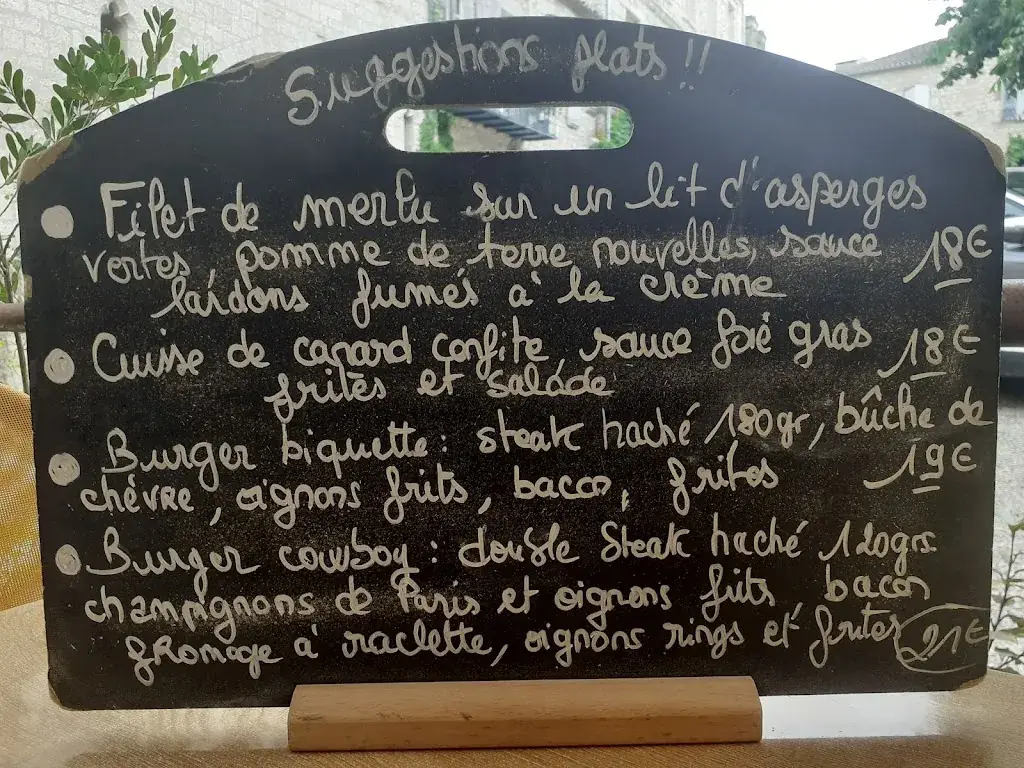 Suggestions plats !!
Filet de merlu sur un lit d'asperges
vertes, pomme de terre nouvelles, sauce 18€
lardons fumés à la crème
Cuisse de canard confite, sauce foie gras 18€
frites et salade
Burger biquette : steak haché 180gr, bûche de
chèvre, oignons frits, bacon, frites 19€
Burger cowboy : double steak haché 120grs
champignons de Paris et oignons frits, bacon
fromage à raclette, oignons rings et frites 21€